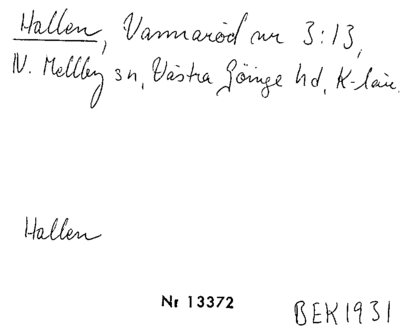 Hallen, Vannaröd nr 3:13,
N. Mellby sn, Västra Göinge hd, K-län.
Hallen
Nr 13372
BEK1931